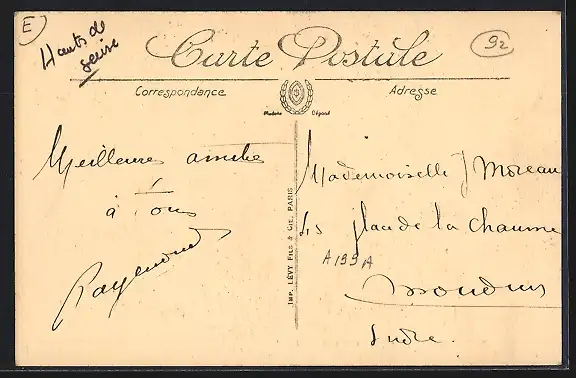 E
Hauts de
seine
Carte Postale
92
Correspondance
Adresse
Marque Déposé
Meilleures amitiés
à Tous
Raymond
IMP. LÉVY FILS & CIE, PARIS
Mademoiselle J Moreau
45 place de la Chaume
A 199 A
Indre.